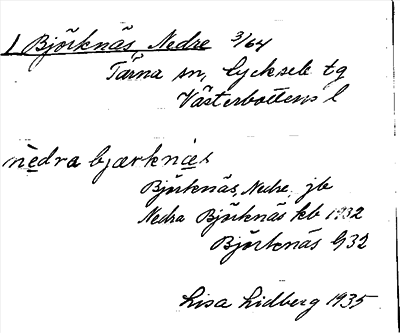 1 Björknäs, Nedre 3/64
Tärna sn, Lycksele tg
Västerbottens l
nedra bjærknæs
Björknäs, Nedre, jb
Nedra Björknäs kb 1932
Björknäs G32
Lisa Lidberg 1935